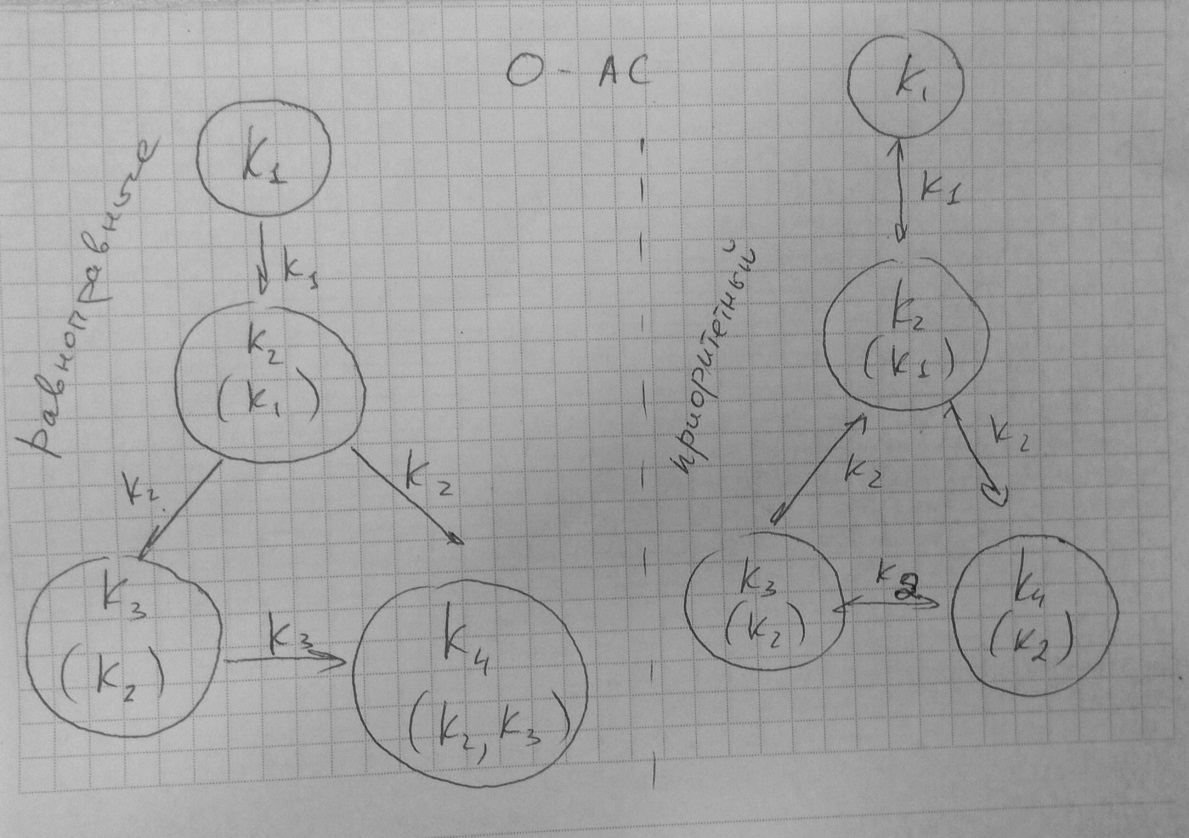 О - АС
Равноправные
K₁
K₁
K₂
(K₁)
K₂
K₂
K₃
(K₂)
K₃
K₄
(K₂, K₃)
приоритетный
K₁
K₁
K₂
(K₁)
K₂
K₂
K₃
(K₂)
K₂
K₄
(K₂)